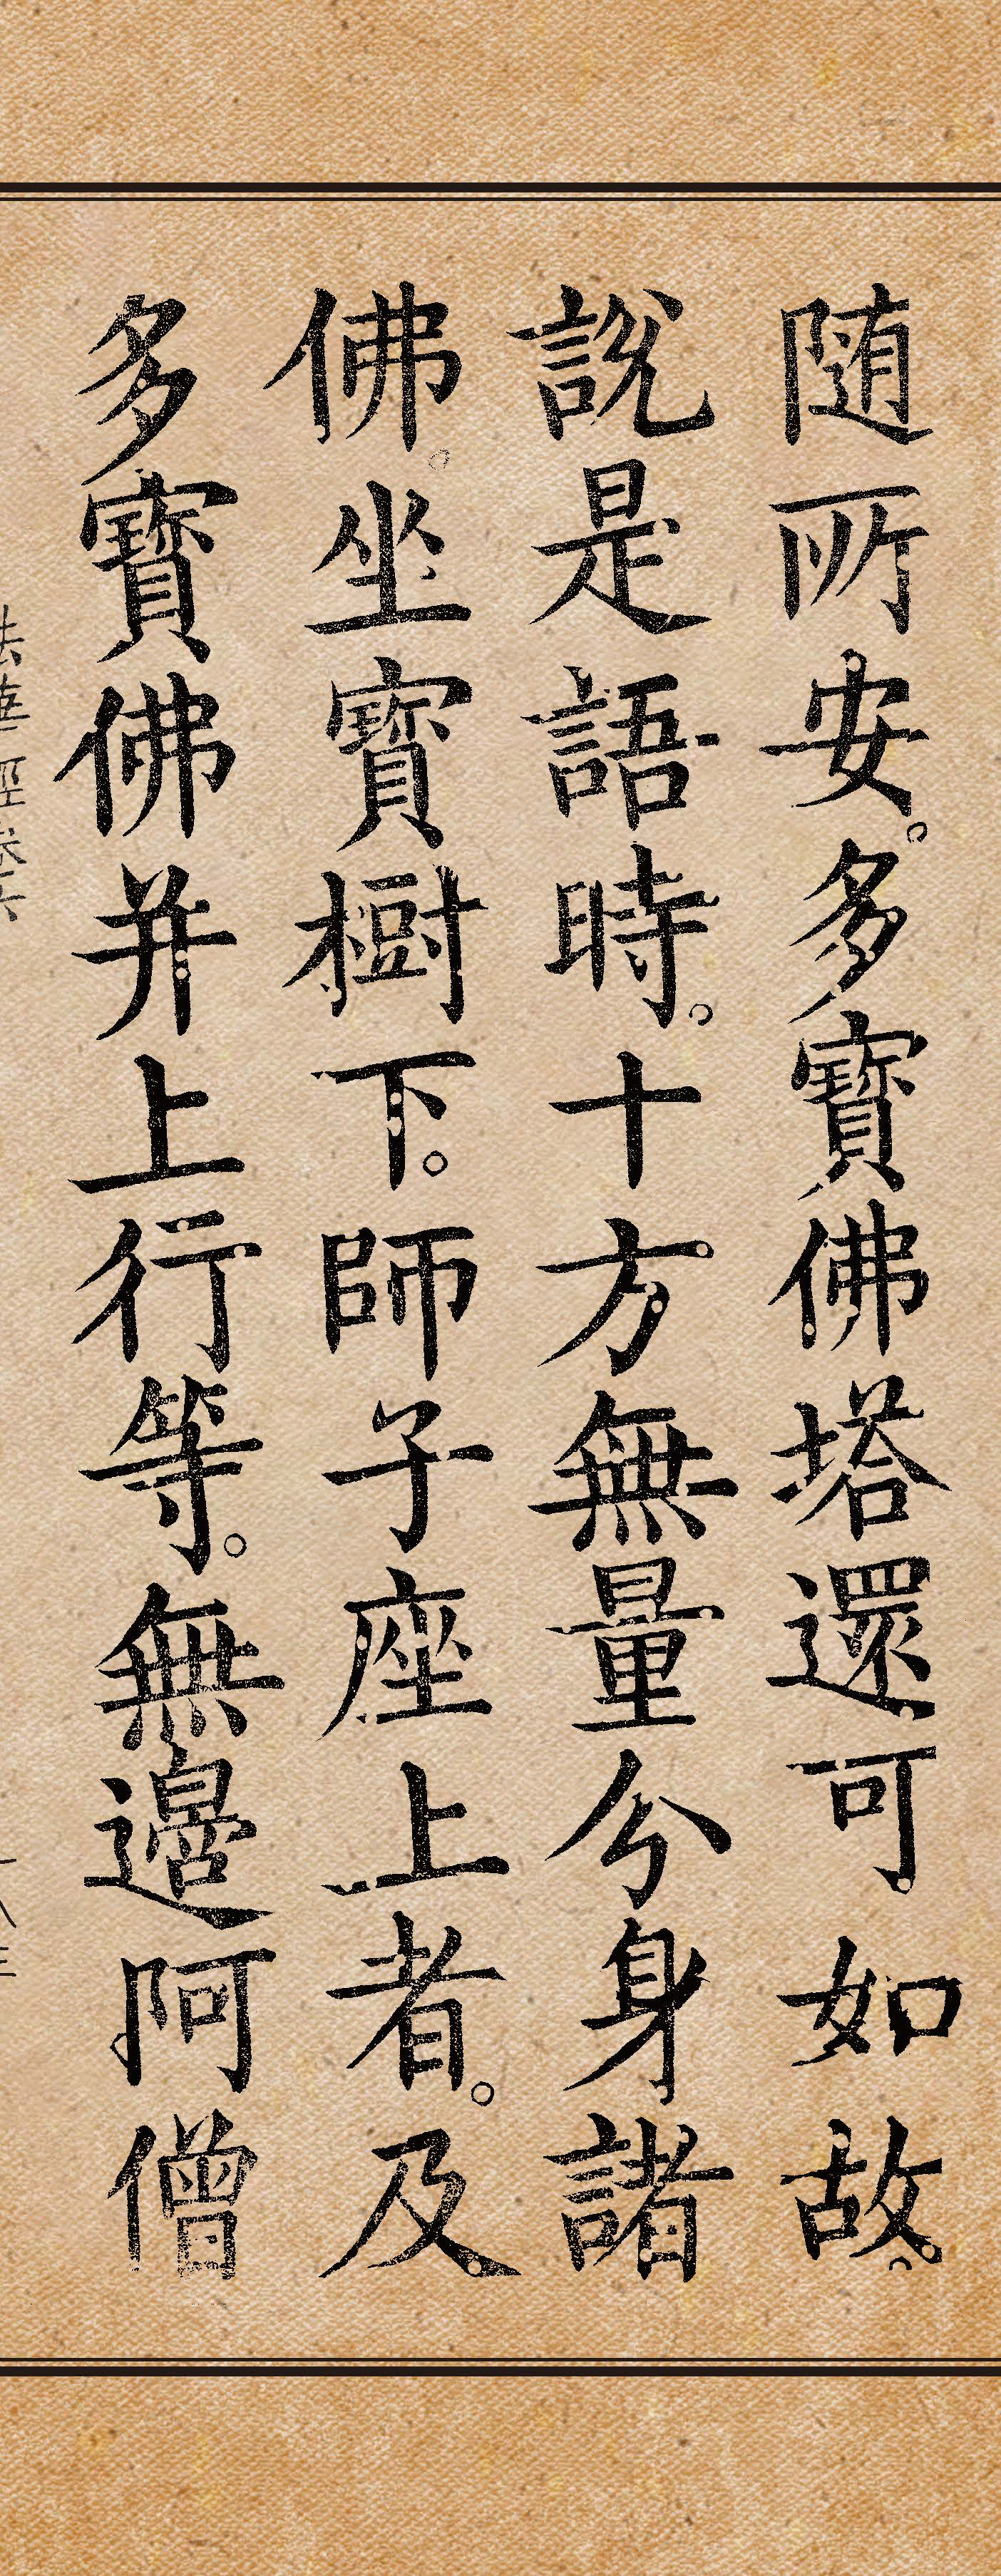 随所安。多寶佛塔還可如故。
說是語時。十方無量分身諸
佛。坐寶樹下。師子座上者。及
多寶佛并上行等。無邊阿僧
法華經卷六